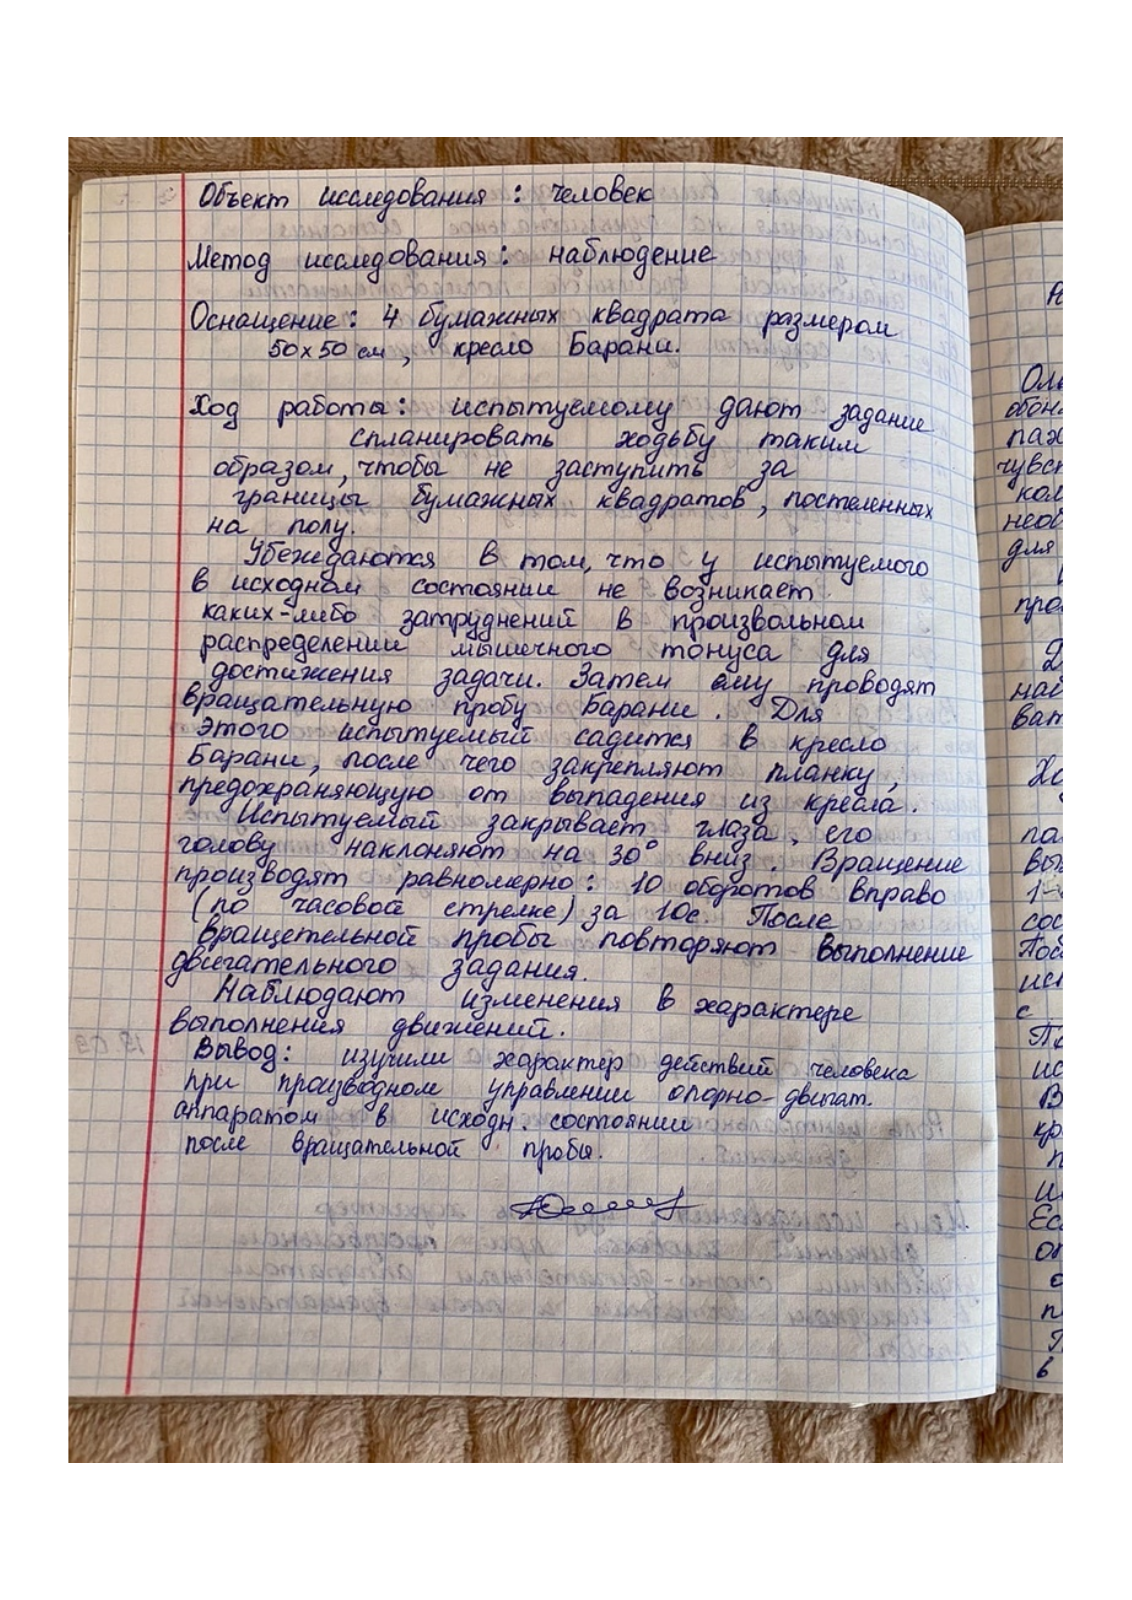 Объект исследования : человек
Метод исследования : наблюдение
Оснащение : 4 бумажных квадрата размером
50х50 см , кресло Барани.
Ход работы : испытуемому дают задание
спланировать ходьбу таким
образом, чтобы не заступить за
границы бумажных квадратов , постеленных
на полу.
Убеждаются в том, что у испытуемого
в исходном состоянии не возникает
каких-либо затруднений в произвольном
распределении мышечного тонуса для
достижения задачи. Затем ему проводят
вращательную пробу Барани . Для
этого испытуемый садится в кресло
Барани, после чего закрепляют планку,
предохраняющую от выпадения из кресла .
Испытуемый закрывает глаза , его
голову наклоняют на 30° вниз . Вращение
производят равномерно : 10 оборотов вправо
(по часовой стрелке) за 10с. После
вращетельной пробы повторяют выполнение
двигательного задания.
Наблюдают изменения в характере
выполнения движений.
Вывод : изучили характер действий человека
при производном управлении опорно-двигат.
аппаратом в исходн. состоянии
после вращательной пробы.
для